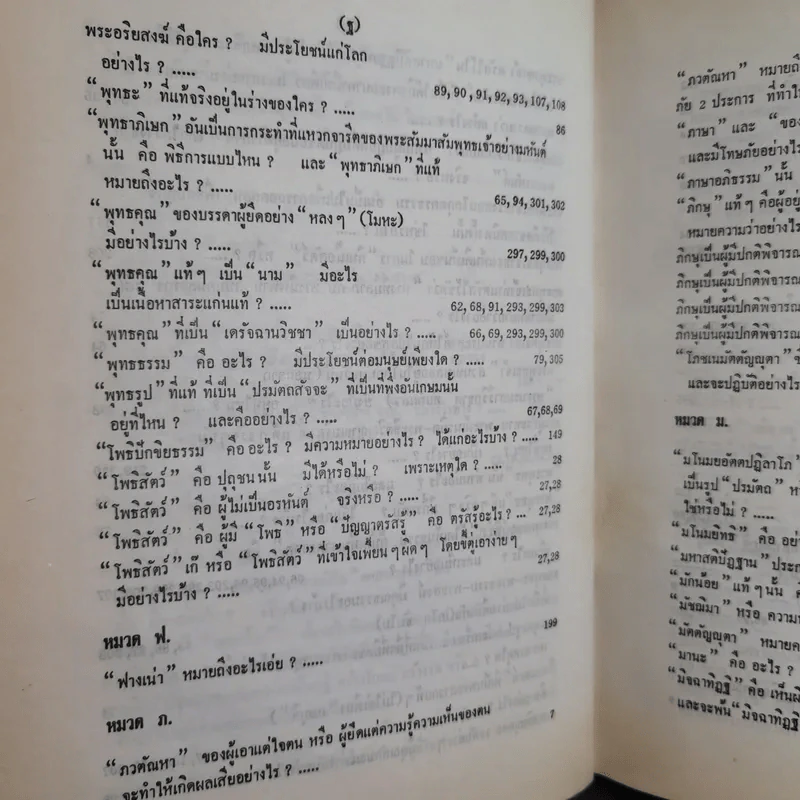 (ฐ)
พระอริยสงฆ์ คือใคร ? มีประโยชน์แก่โลก
อย่างไร ? ..... 89, 90, 91, 92, 93, 107, 108
“พุทธะ” ที่แท้จริงอยู่ในร่างของใคร ? ..... 86
“พุทธาภิเษก” อันเป็นการกระทำที่แหวกจารีตของพระสัมมาสัมพุทธเจ้าอย่างมหันต์
นั้น คือ พิธีการแบบไหน ? และ “พุทธาภิเษก” ที่แท้
หมายถึงอะไร ? ..... 65, 94, 301, 302
“พุทธคุณ” ของบรรดาผู้ยึดอย่าง “หลงๆ” (โมหะ)
มีอย่างไรบ้าง ? ..... 297, 299, 300
“พุทธคุณ” แท้ๆ เป็น “นาม” มีอะไร
เป็นเนื้อหาสาระแก่นแท้ ? ..... 62, 68, 91, 293, 299, 303
“พุทธคุณ” ที่เป็น “เดรัจฉานวิชชา” เป็นอย่างไร ? ..... 66, 69, 293, 299, 300
“พุทธธรรม” คือ อะไร ? มีประโยชน์ต่อมนุษย์เพียงใด ? ..... 79, 305
“พุทธรูป” ที่แท้ ที่เป็น “ปรมัตถสัจจะ” ที่เป็นที่พึ่งอันเกษมนั้น
อยู่ที่ไหน ? และคืออย่างไร ? ..... 67,68,69
“โพธิปักขิยธรรม” คือ อะไร ? มีความหมายอย่างไร ? ได้แก่อะไรบ้าง ? ..... 149
“โพธิสัตว์” คือ ปุถุชน นั้น มีได้หรือไม่ ? เพราะเหตุใด ? ..... 28
“โพธิสัตว์” คือ ผู้ไม่เป็นอรหันต์ จริงหรือ ? ..... 27,28
“โพธิสัตว์” คือ ผู้มี “โพธิ” หรือ “ปัญญาตรัสรู้” คือ ตรัสรู้อะไร ? ... 27,28
“โพธิสัตว์” เก๊ หรือ “โพธิสัตว์” ที่เข้าใจเพี้ยนๆ ผิดๆ โดยขี้ตู่เอาง่ายๆ
มีอย่างไรบ้าง ? ..... 27,28
หมวด ฟ.
“ฟางเน่า” หมายถึงอะไรเอ่ย ? ..... 199
หมวด ภ.
“ภวตัณหา” ของผู้เอาแต่ใจตน หรือ ผู้ยึดแต่ความรู้ความเห็นของตน
จะทำให้เกิดผลเสียอย่างไร ? ..... 7
“ภวตัณหา” หมายถึ
ภัย 2 ประการ ที่ทำให้
“ภาษา” และ “ของ
และมีโทษภัยอย่างไร
“ภาษาอภิธรรม” นั้น
“ภิกษุ” แท้ๆ คือผู้อยู่
หมายความว่าอย่างไร
ภิกษุเป็นผู้มีปกติพิจารณ
ภิกษุเป็นผู้มีปกติพิจารณ
ภิกษุเป็นผู้มีปกติพิจารณ
ภิกษุเป็นผู้มีปกติพิจารณ
“โภชเนมัตตัญญุตา”
และจะปฏิบัติอย่างไร
หมวด ม.
“มโนมยอัตตปฏิลาโภ”
เป็นรูป “ปรมัตถ”
ใช่หรือไม่ ? .....
“มโนมยิทธิ” คือ
“มหาสติปัฏฐาน”
“มักน้อย” แท้ๆ นั้น
“มัชฌิมา” หรือ ความ
“มัตตัญญุตา” หมายค
“มานะ” คือ อะไร ?
“มิจฉาทิฏฐิ” คือ เห็นผิ
และจะพ้น “มิจฉาทิฏฐิ